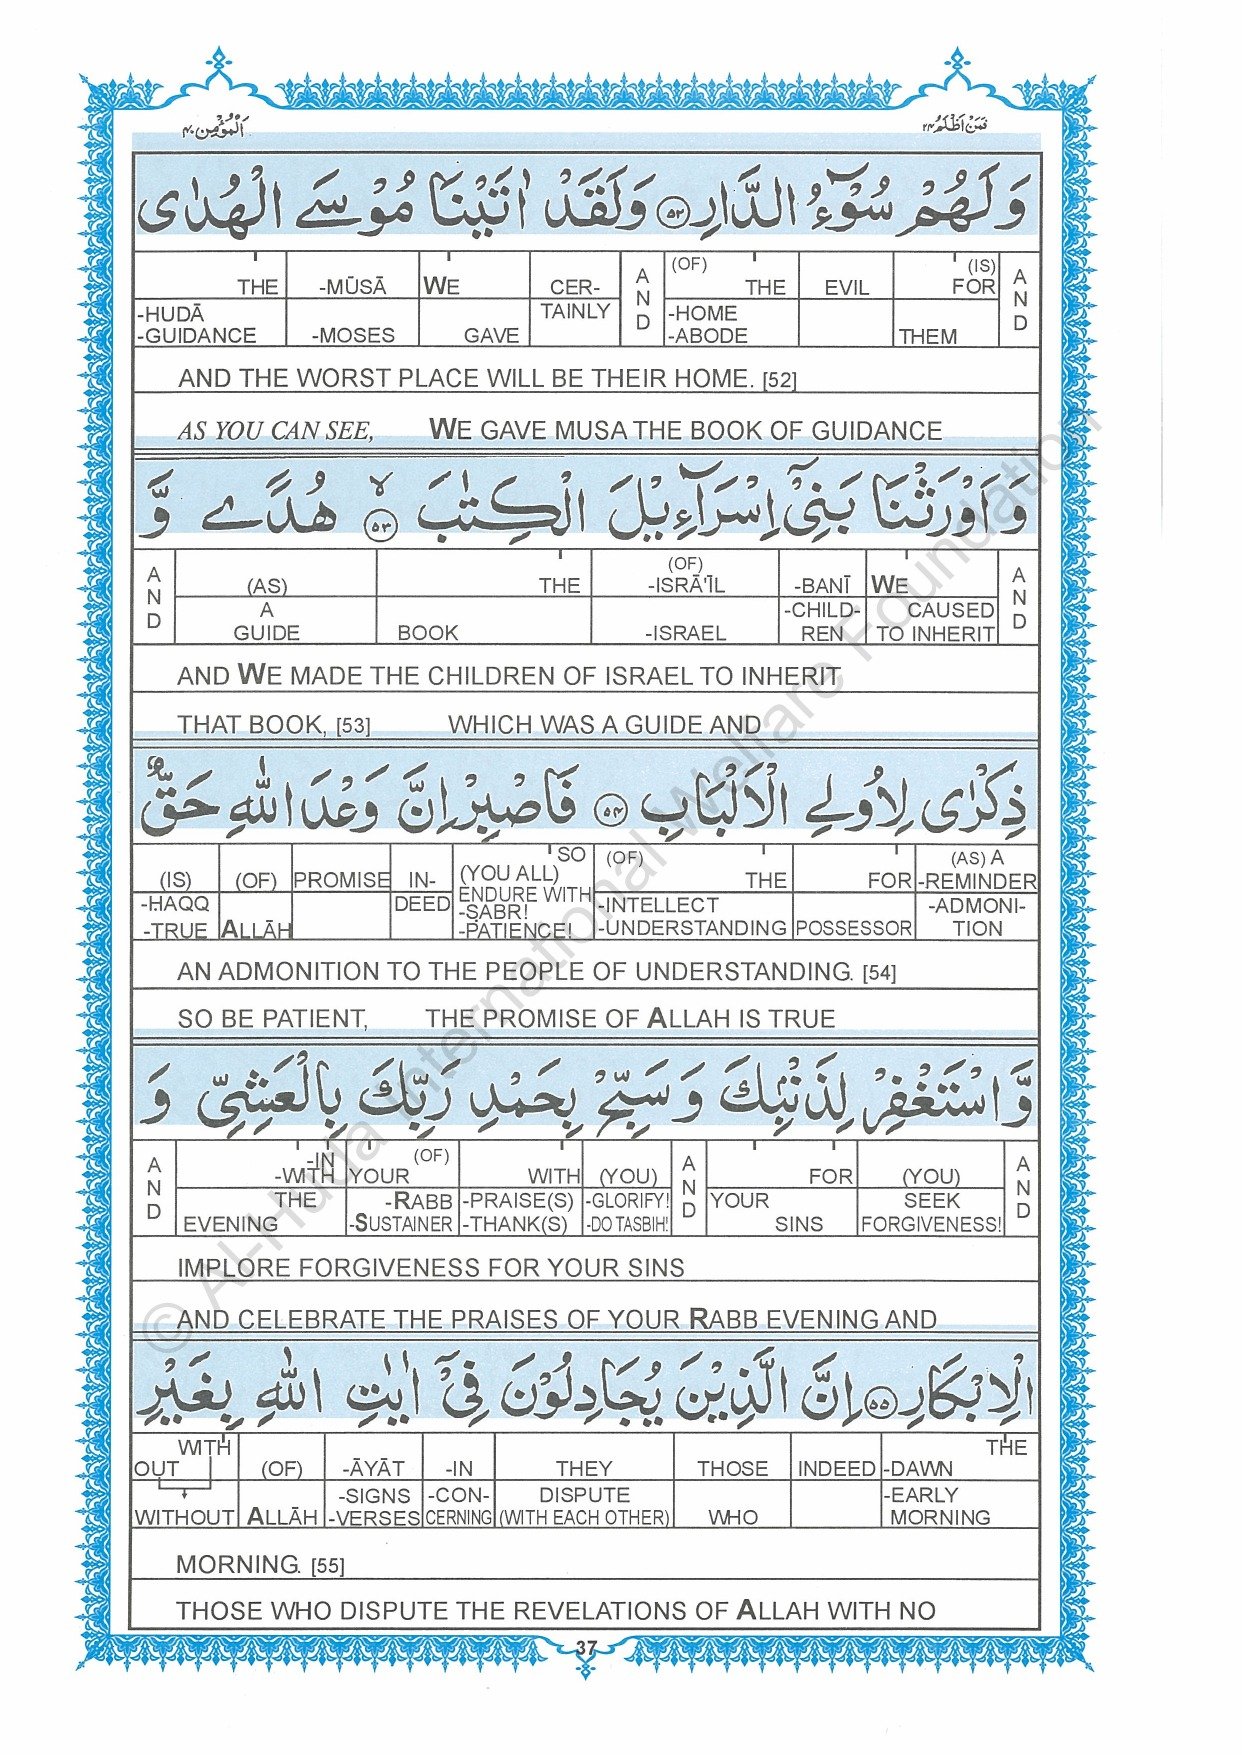 اَلْمُؤْمِن ۴۰
فَمَنْ اَظْلَمُ ۲۴
وَ لَهُمْ سُوْٓءُ الدَّارِ ﴿۵۲﴾ وَ لَقَدْ اٰتَيْنَا مُوْسَے الْهُدٰى
THE -MŪSĀ WE CER- AND (OF) THE EVIL (IS) FOR AND
-HUDĀ -GUIDANCE -MOSES GAVE TAINLY -HOME -ABODE THEM
AND THE WORST PLACE WILL BE THEIR HOME. [52]
AS YOU CAN SEE, WE GAVE MUSA THE BOOK OF GUIDANCE
وَ اَوْرَثْنَا بَنِيْٓ اِسْرَآءِيْلَ الْكِتٰبَ ﴿۵۳﴾ لا هُدًے وَّ
AND (AS) THE (OF) -ISRĀ'ĪL -BANĪ WE AND
A GUIDE BOOK -ISRAEL -CHILD-REN CAUSED TO INHERIT
AND WE MADE THE CHILDREN OF ISRAEL TO INHERIT
THAT BOOK, [53] WHICH WAS A GUIDE AND
ذِكْرٰى لِاُولِے الْاَلْبَابِ ﴿۵۴﴾ فَاصْبِرْ اِنَّ وَعْدَ اللّٰهِ حَقٌّ
(IS) (OF) PROMISE IN- SO (YOU ALL) (OF) THE FOR (AS) A -REMINDER
-HAQQ -TRUE ALLĀH DEED ENDURE WITH -SABR! -PATIENCE! -INTELLECT -UNDERSTANDING POSSESSOR -ADMONI-TION
AN ADMONITION TO THE PEOPLE OF UNDERSTANDING. [54]
SO BE PATIENT, THE PROMISE OF ALLAH IS TRUE
وَّ اسْتَغْفِرْ لِذَنْۢبِكَ وَ سَبِّحْ بِحَمْدِ رَبِّكَ بِالْعَشِيِّ وَ
AND -IN -WITH YOUR (OF) WITH (YOU) AND FOR (YOU) AND
THE EVENING -RABB -SUSTAINER -PRAISE(S) -THANK(S) -GLORIFY! -DO TASBIH! YOUR SINS SEEK FORGIVENESS!
IMPLORE FORGIVENESS FOR YOUR SINS
AND CELEBRATE THE PRAISES OF YOUR RABB EVENING AND
الْاِبْكَارِ ﴿۵۵﴾ اِنَّ الَّذِيْنَ يُجَادِلُوْنَ فِيْٓ اٰيٰتِ اللّٰهِ بِغَيْرِ
WITH OUT (OF) -ĀYĀT -IN THEY THOSE INDEED THE -DAWN
WITHOUT ALLĀH -SIGNS -VERSES -CON-CERNING DISPUTE (WITH EACH OTHER) WHO -EARLY MORNING
MORNING. [55]
THOSE WHO DISPUTE THE REVELATIONS OF ALLAH WITH NO
37
© Al-Huda International Welfare Foundation